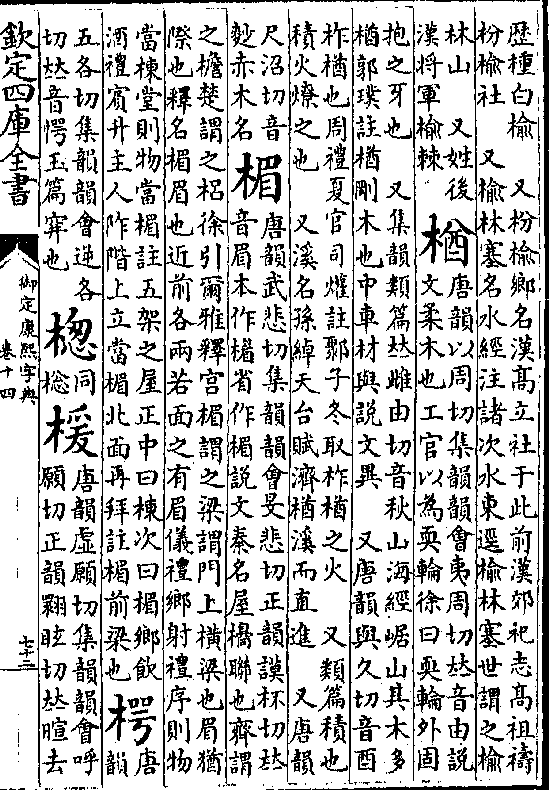 歷種白榆　又枌榆鄉名漢高立社于此前漢郊祀志高祖禱
枌榆社　又榆林塞名水經注諸次水東逕榆林塞世謂之榆
林山　又姓後漢將軍榆棘　楢唐韻以周切集韻韻會夷周切𠀤音由說文柔木也工官以為耎輪徐曰耎輪外固
抱之牙也　又集韻類篇𠀤雌由切音秋山海經崌山其木多
楢郭璞註楢剛木也中車材與說文異　又唐韻與久切音酉
柞楢也周禮夏官司爟註鄹子冬取柞楢之火　又類篇積也
積火燎之也　又溪名孫綽天台賦濟楢溪而直進　又唐韻
尺沼切音麨赤木名　楣唐韻武悲切集韻韻會旻悲切正韻謨杯切𠀤音眉本作楣省作楣說文秦名屋櫋聯也齊謂
之檐楚謂之梠徐引爾雅釋宮楣謂之梁謂門上橫梁也眉猶
際也釋名楣眉也近前各兩若面之有眉儀禮鄉射禮序則物
當棟堂則物當楣註五架之屋正中曰棟次曰楣鄉飲
酒禮賓升主人阼階上立當楣北面再拜註楣前梁也　楞唐韻
五各切集韻韻會逆各切𠀤音愕玉篇穽也　楤同樬　楥唐韻虛願切集韻韻會呼願切正韻翾眩切𠀤音暄去
欽定四庫全書
御定康熙字典
卷十四
七十二